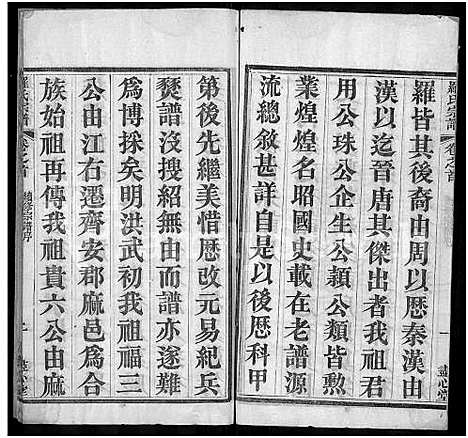 羅氏宗譜 卷之首 一 盡心堂
羅皆其後裔由周以歷秦漢由
漢以迄晉唐其傑出者我祖君
用公珠公企生公潁公類皆勲
業煌煌名昭國史載在老譜源
流總敘甚詳且以後歷科甲
第後先繼美惜歷改元易紀兵
燹譜沒搜紹無由而譜亦遂難
爲博採矣明洪武初我祖福三
公由江右遷齊安郡麻邑爲合
族始祖再傳我祖貴六公由麻
卷之首